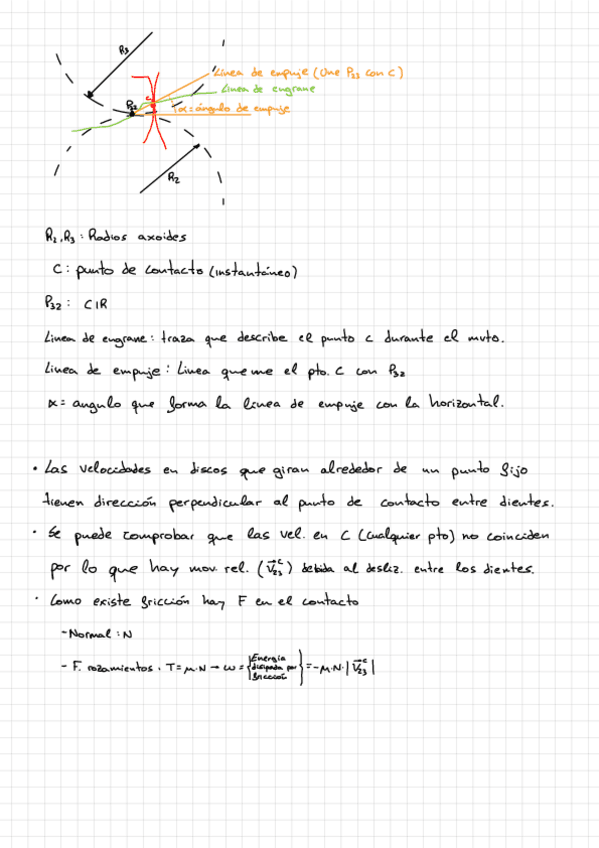 R3
Línea de empuje (Une P23 con C)
Línea de engrane
P32
C
α = ángulo de empuje
R2
R2, R3 : Radios axoides
C : punto de contacto (instantáneo)
P32 : CIR
Linea de engrane : traza que describe el punto c durante el mvto.
Linea de empuje : Linea que une el pto. C con P32
α = angulo que forma la línea de empuje con la horizontal.
• Las velocidades en discos que giran alrededor de un punto fijo
tienen dirección perpendicular al punto de contacto entre dientes.
• Se puede comprobar que las vel. en C (cualquier pto) no coinciden
por lo que hay mov. rel. (V⃗23^c) debida al desliz. entre los dientes.
• Como existe fricción hay F en el contacto
- Normal : N
- F. rozamientos. T = μ·N → ω = {Energía disipada por fricción} = -μ·N·|V⃗23^c|